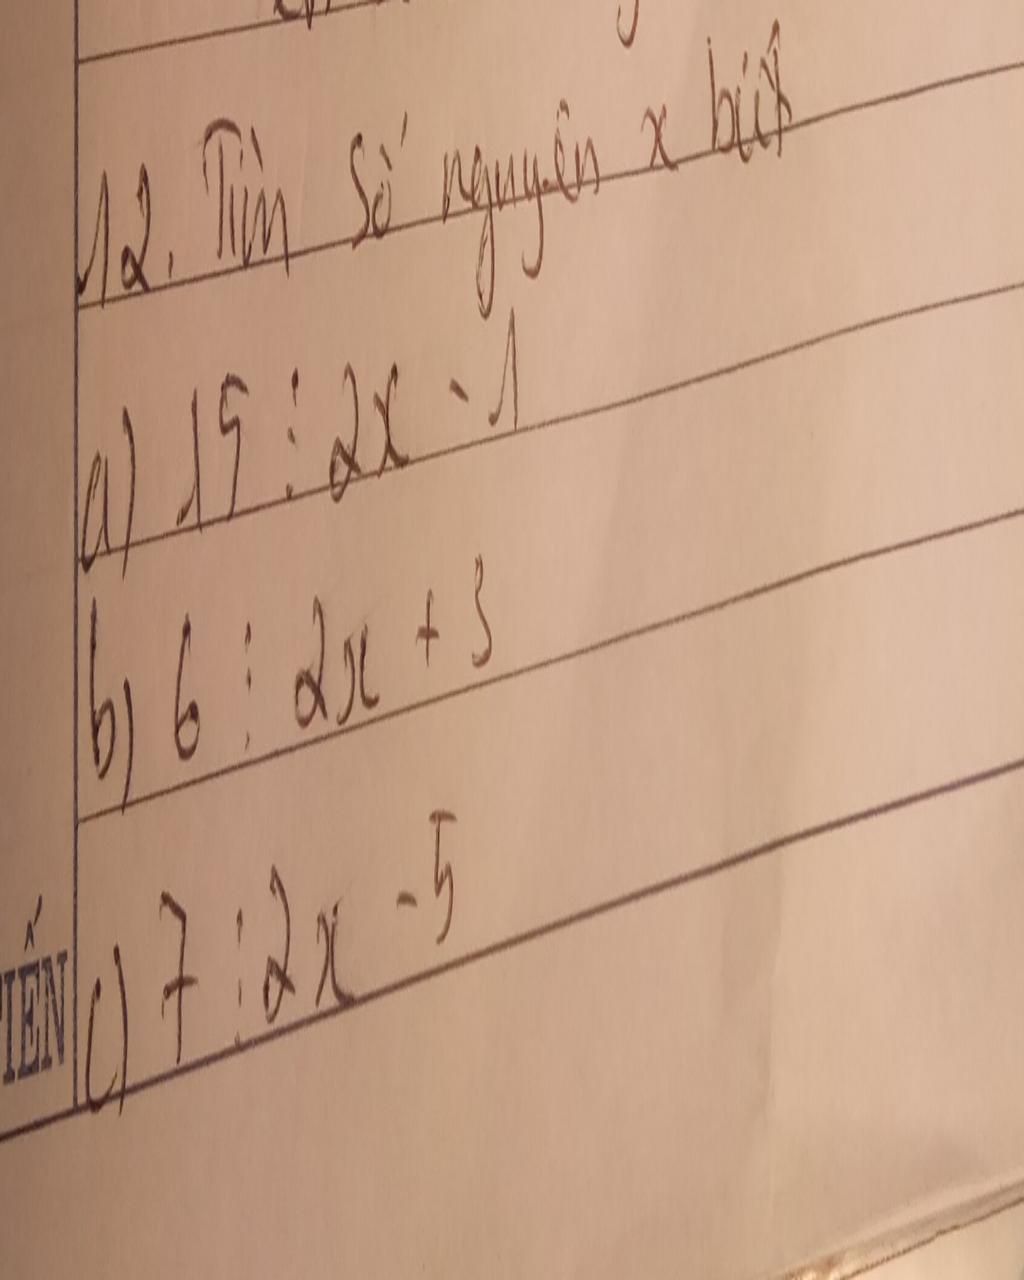 12. Tìm số nguyên x biết
a) 15 ⋮ 2x - 1
b) 6 ⋮ 2x + 3
c) 7 ⋮ 2x - 5
IẾN